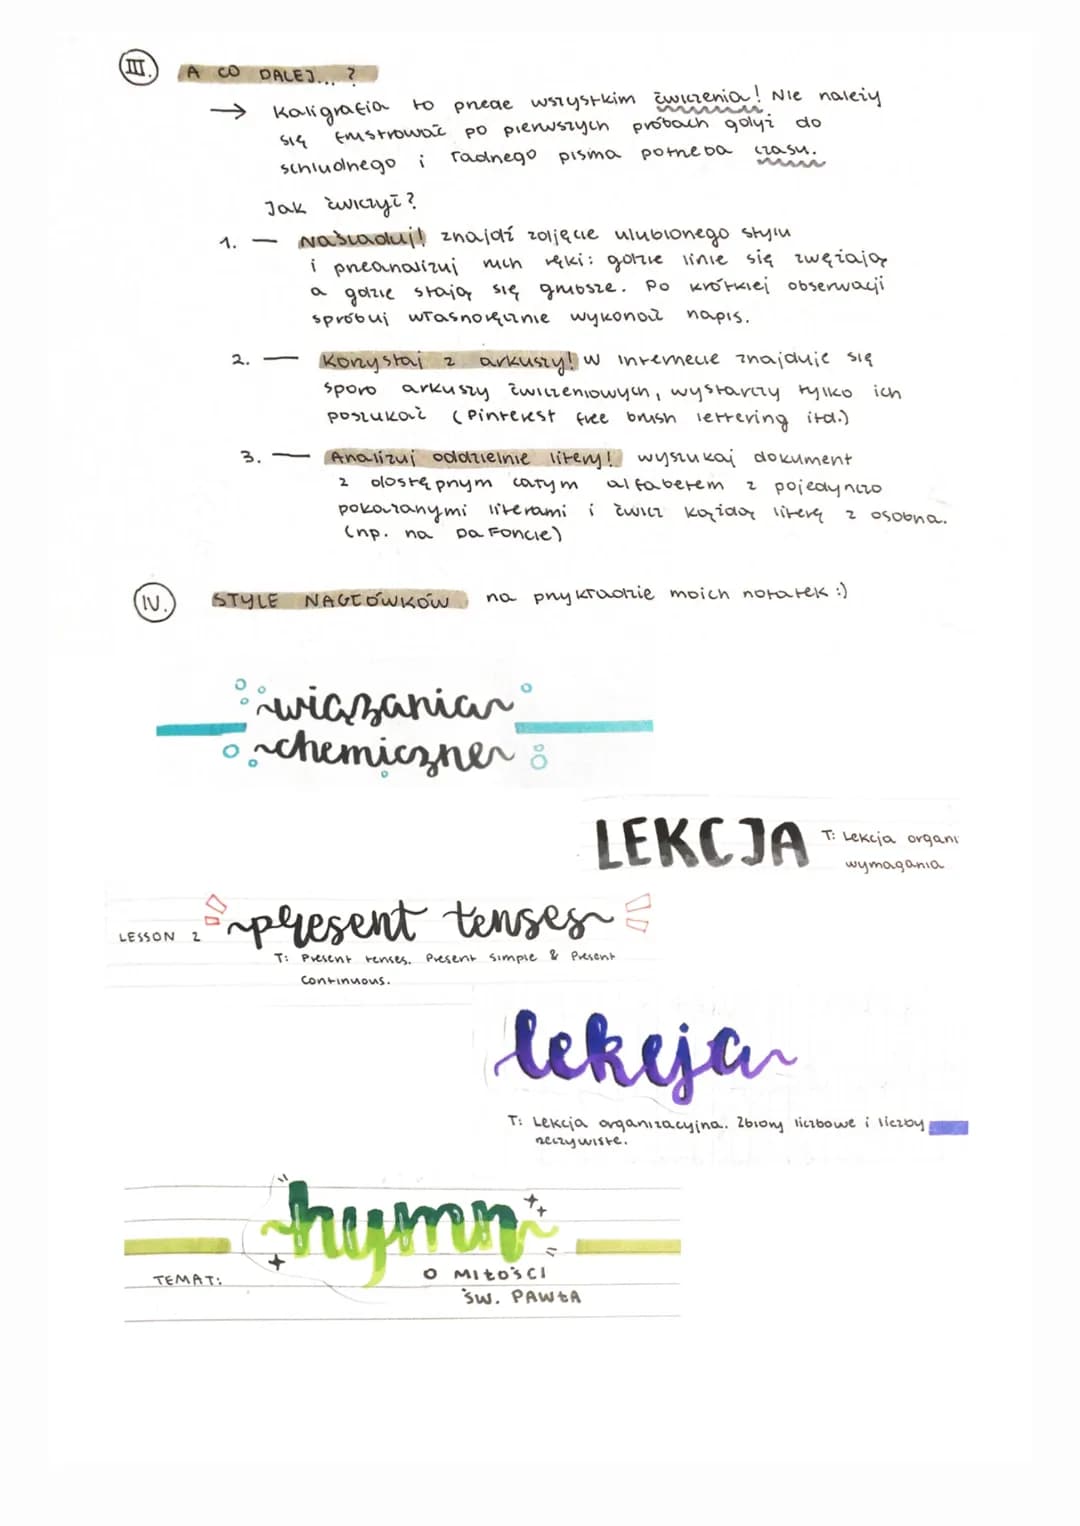 III. A CO DALEJ... ?
→ Kaligrafia to przede wszystkim ćwiczenia! Nie należy
się frustrować po pierwszych próbach gdyż do
schludnego i ładnego pisma potrzeba czasu.
Jak ćwiczyć?
1. — Naśladuj! znajdź zdjęcie ulubionego stylu
i przeanalizuj ruch ręki: gdzie linie się zwężają,
a gdzie stają się grubsze. Po krótkiej obserwacji
spróbuj własnoręcznie wykonać napis.
2. — Korzystaj z arkuszy! W internecie znajduje się
sporo arkuszy ćwiczeniowych, wystarczy tylko ich
poszukać (Pinterest free brush lettering itd.)
3. — Analizuj oddzielnie litery! wyszukaj dokument
z dostępnym całym alfabetem z pojedynczo
pokazanymi literami i ćwicz każdą literę z osobna.
(np. na DaFoncie)
IV. STYLE NAGŁÓWKÓW na przykładzie moich notatek :)
wiązania
chemiczne
LEKCJA T: Lekcja organi
wymagania
LESSON 2 present tenses
T: Present tenses. Present Simple & Present
Continuous.
lekcja
T: Lekcja organizacyjna. Zbiory liczbowe i liczby
rzeczywiste.
hymn
TEMAT: O MIŁOŚCI
ŚW. PAWŁA